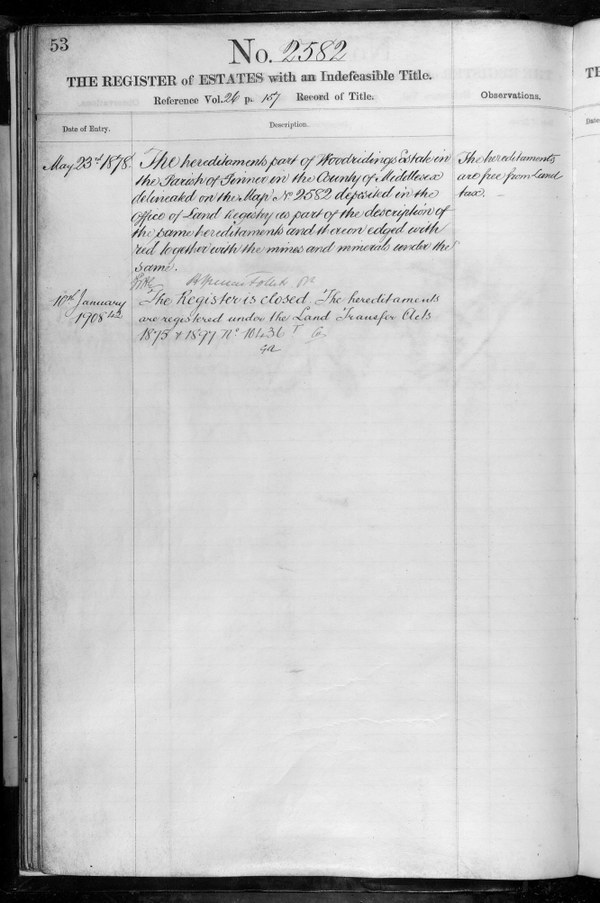 53
No. 2582
THE REGISTER of ESTATES with an Indefeasible Title.
Reference Vol. 26 p. 157 Record of Title.
Observations.
Date of Entry.
Description.
May 23rd 1878.
The hereditaments part of Woodridings Estate in
the Parish of Pinner in the County of Middlesex
delineated on the Map No 2582 deposited in the
Office of Land Registry as part of the description of
the same hereditaments and thereon edged with
red together with the mines and minerals under the
same.
The hereditaments
are free from Land
tax.
10th January
1908
The Register is closed. The hereditaments
are registered under the Land Transfer Acts
1875 & 1897 No 101436